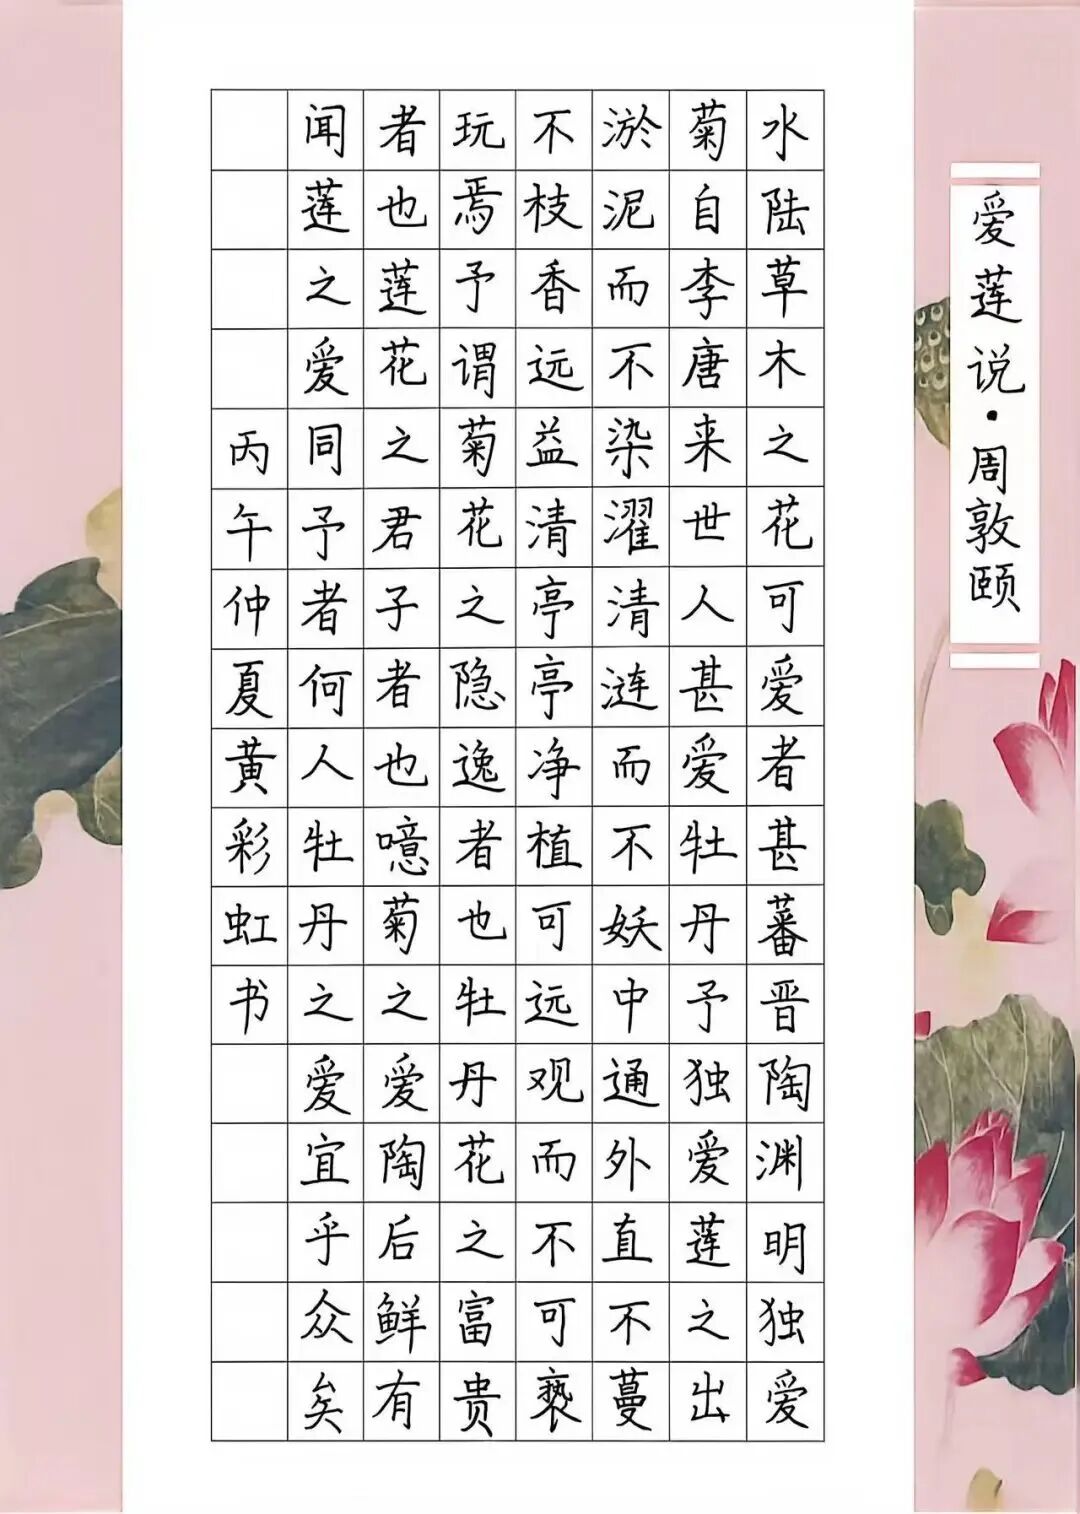 爱莲说·周敦颐
水陆草木之花可爱者甚蕃晋陶渊明独爱
菊自李唐来世人甚爱牡丹予独爱莲之出
淤泥而不染濯清涟而不妖中通外直不蔓
不枝香远益清亭亭净植可远观而不可亵
玩焉予谓菊花之隐逸者也牡丹花之富贵
者也莲花之君子者也噫菊之爱陶后鲜有
闻莲之爱同予者何人牡丹之爱宜乎众矣
丙午仲夏黄彩虹书